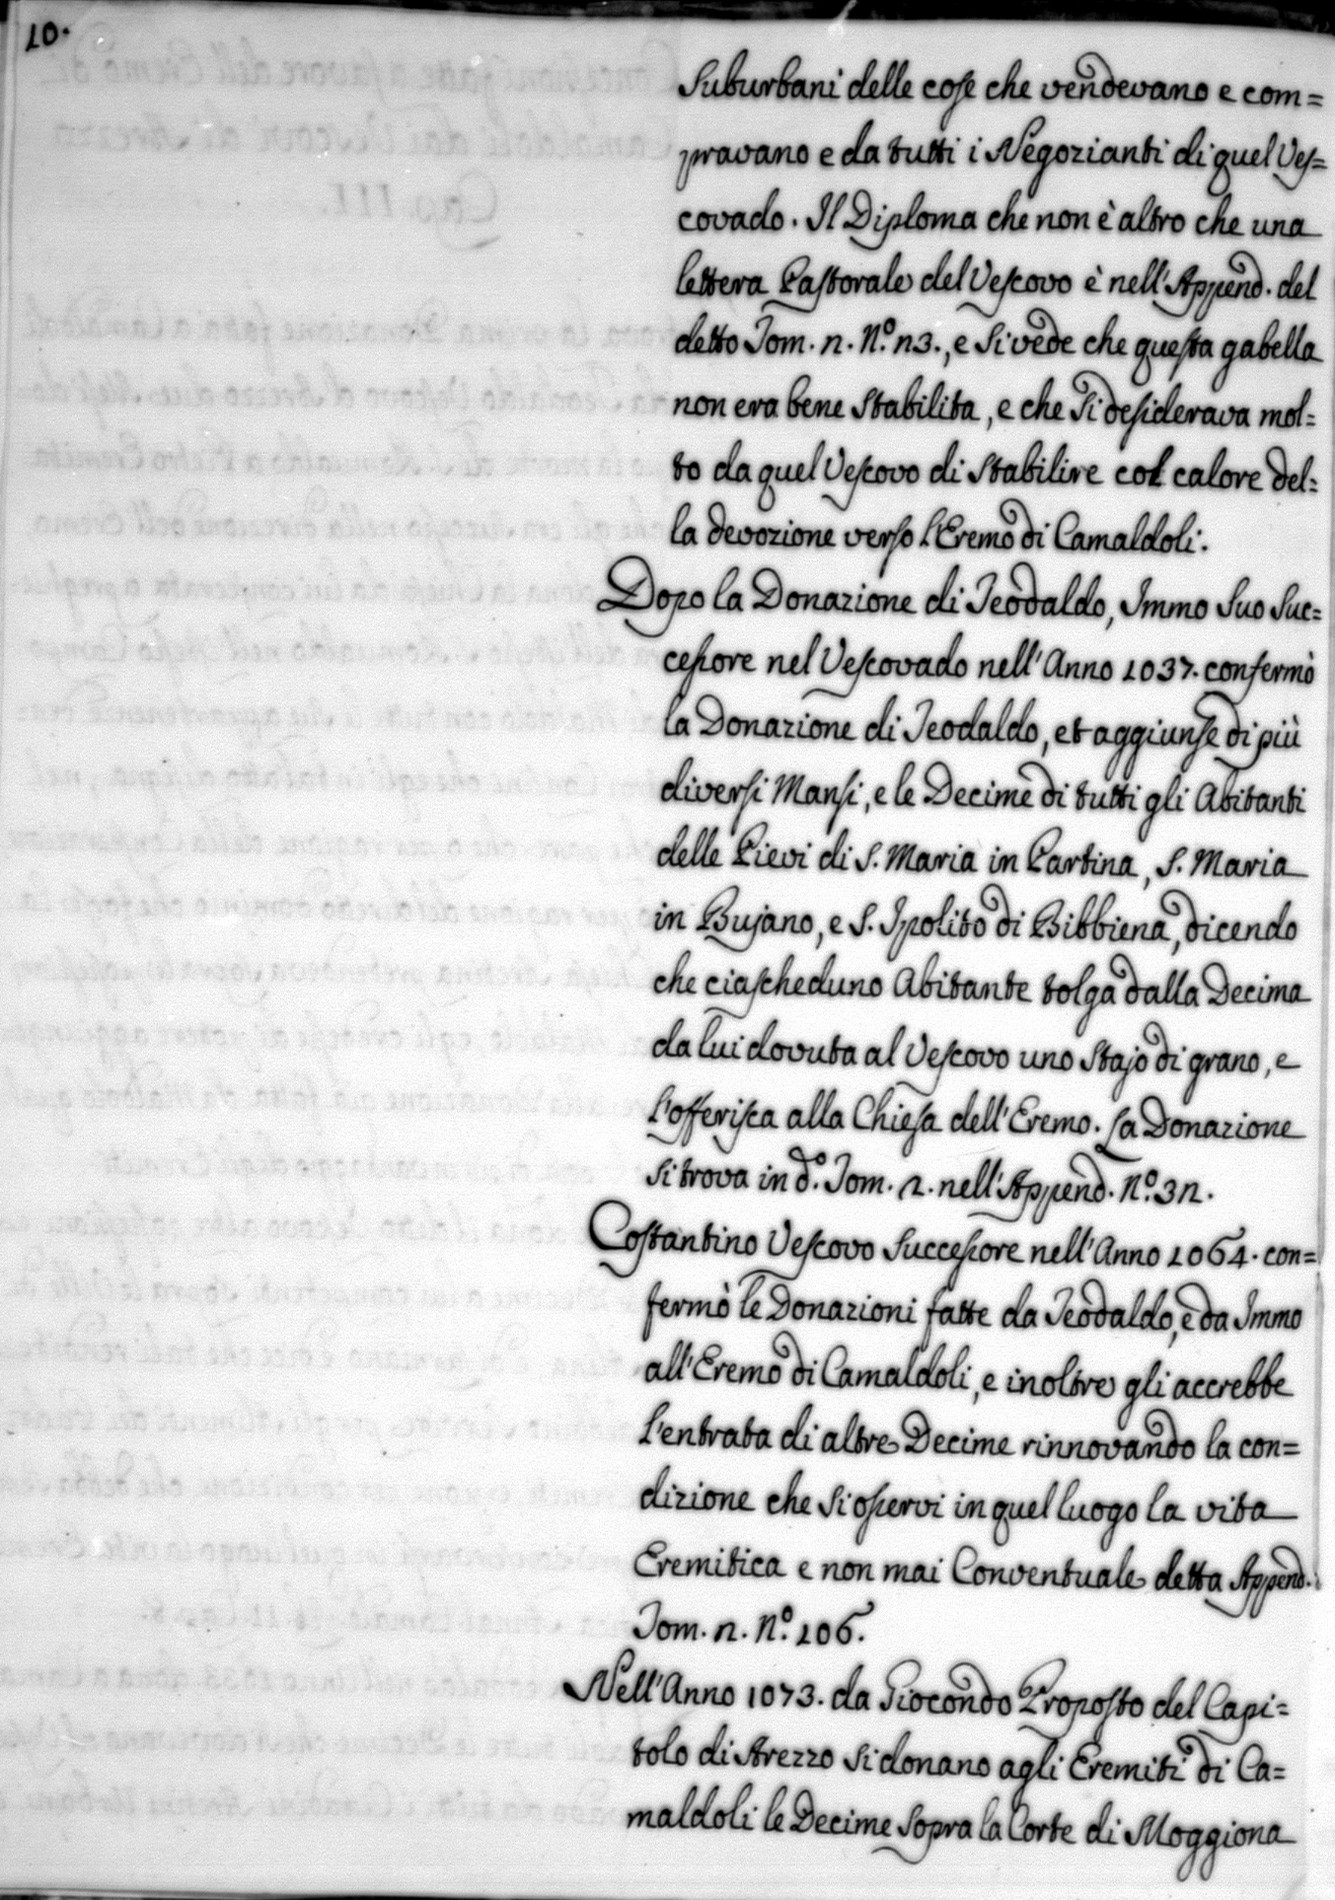 10.
Suburbani delle cose che vendevano e com=
pravano e da tutti i Negozianti di quel Ves=
covado. Il Diploma che non è altro che una
lettera Pastorale del Vescovo è nell'Append. del
detto Tom. 2. N.º 23., e si vede che questa gabella
non era bene stabilita, e che si desiderava mol=
to da quel Vescovo di stabilire col calore del=
la devozione verso l'Eremo di Camaldoli.
Dopo la Donazione di Teodaldo, Immo suo suc=
cessore nel Vescovado nell'Anno 1037. confermò
la Donazione di Teodaldo, et aggiunse di più
diversi Mansi, e le Decime di tutti gli Abitanti
delle Pievi di S. Maria in Partina, S. Maria
in Bujano, e S. Ipolito di Bibbiena, dicendo
che ciascheduno Abitante tolga dalla Decima
da lui dovuta al Vescovo uno stajo di grano, e
l'offerisca alla Chiesa dell'Eremo. La Donazione
si trova in d.º Tom. 2. nell'Append. N.º 32.
Costantino Vescovo successore nell'Anno 1064. con=
fermò le Donazioni fatte da Teodaldo, e da Immo
all'Eremo di Camaldoli, e inoltre gli accrebbe
l'entrata di altre Decime rinnovando la con=
dizione che si osservi in quel luogo la vita
Eremitica e non mai Conventuale detta Append.
Tom. 2. N.º 106.
Nell'Anno 1073. da Giocondo Proposto del Capi=
tolo di Arezzo si donano agli Eremiti di Ca=
maldoli le Decime sopra la Corte di Moggiona